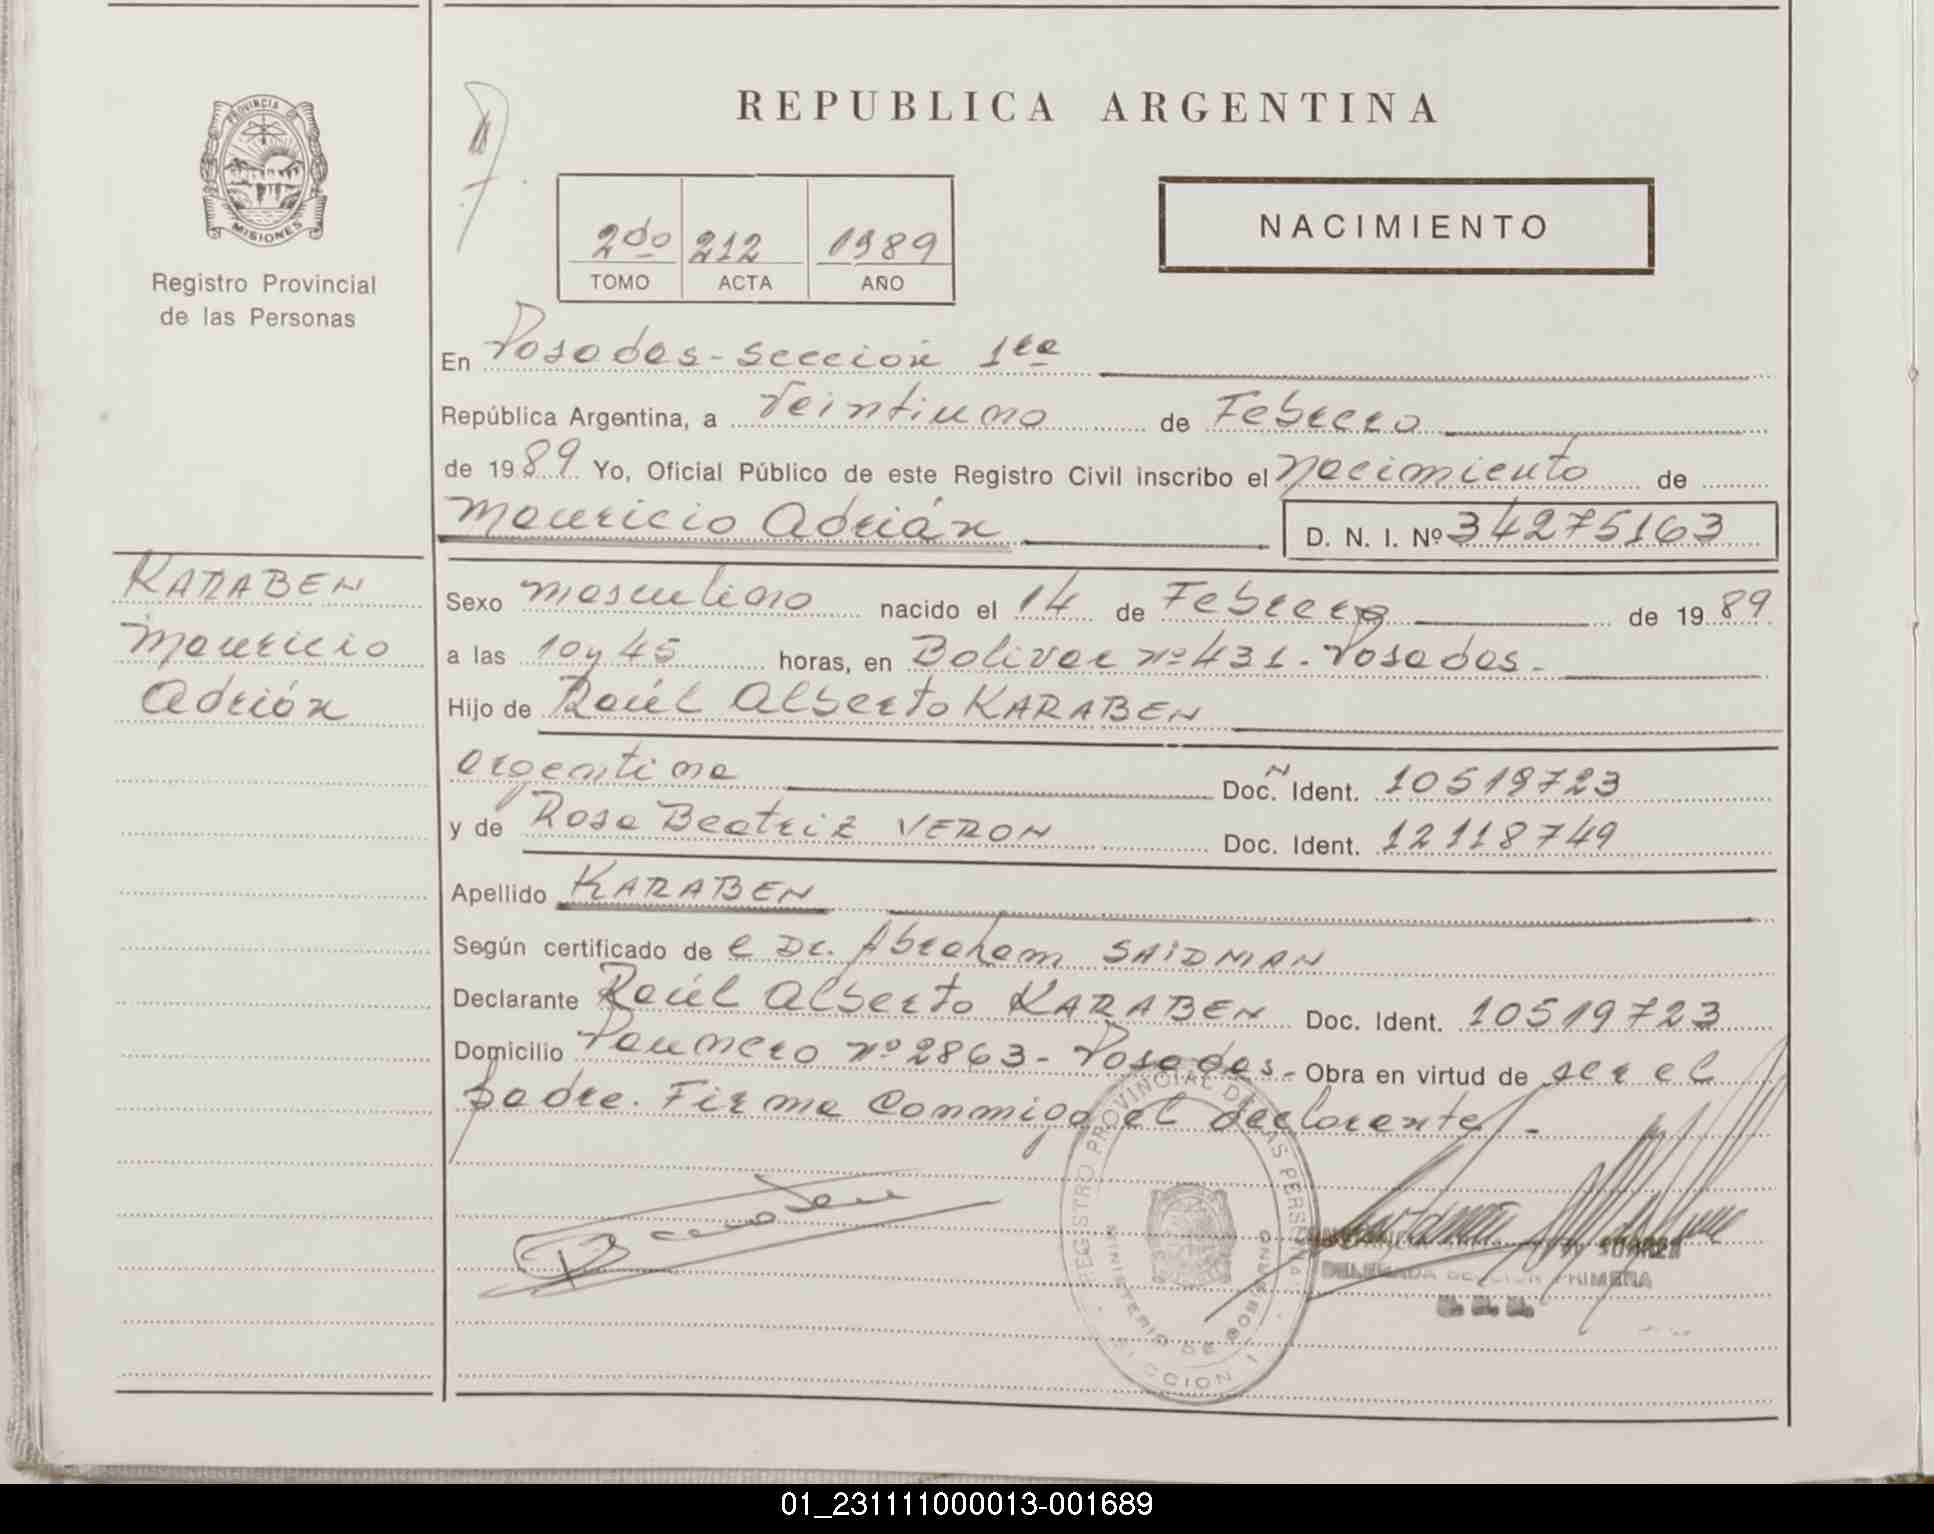 REPUBLICA ARGENTINA
PROVINCIA DE
MISIONES
Registro Provincial
de las Personas
NACIMIENTO
2do 212 1989
TOMO ACTA AÑO
En Posadas - Sección 1ra
República Argentina, a Veintiuno de Febrero
de 1989 Yo, Oficial Público de este Registro Civil inscribo el Nacimiento de
Mauricio Adrián D. N. I. Nº 34275163
KARABEN
Mauricio
Adrión
Sexo masculino nacido el 14 de Febrero de 1989
a las 10 y 45 horas, en Bolivar nº 431 - Posadas -
Hijo de Raúl Alberto KARABEN
argentina Doc. Ident. 10519723
y de Rosa Beatriz VERON Doc. Ident. 12118749
Apellido KARABEN
Según certificado de l Dr. Abraham SAIDMAN
Declarante Raúl Alberto KARABEN Doc. Ident. 10519723
Domicilio Paunero nº 2863 - Posadas - Obra en virtud de ser el
padre. Firma conmigo el declarante -
REGISTRO PROVINCIAL DE LAS PERSONAS
MINISTERIO DE GOBIERNO
SUAREZ
DELEGADA SECCION PRIMERA
01_231111000013-001689